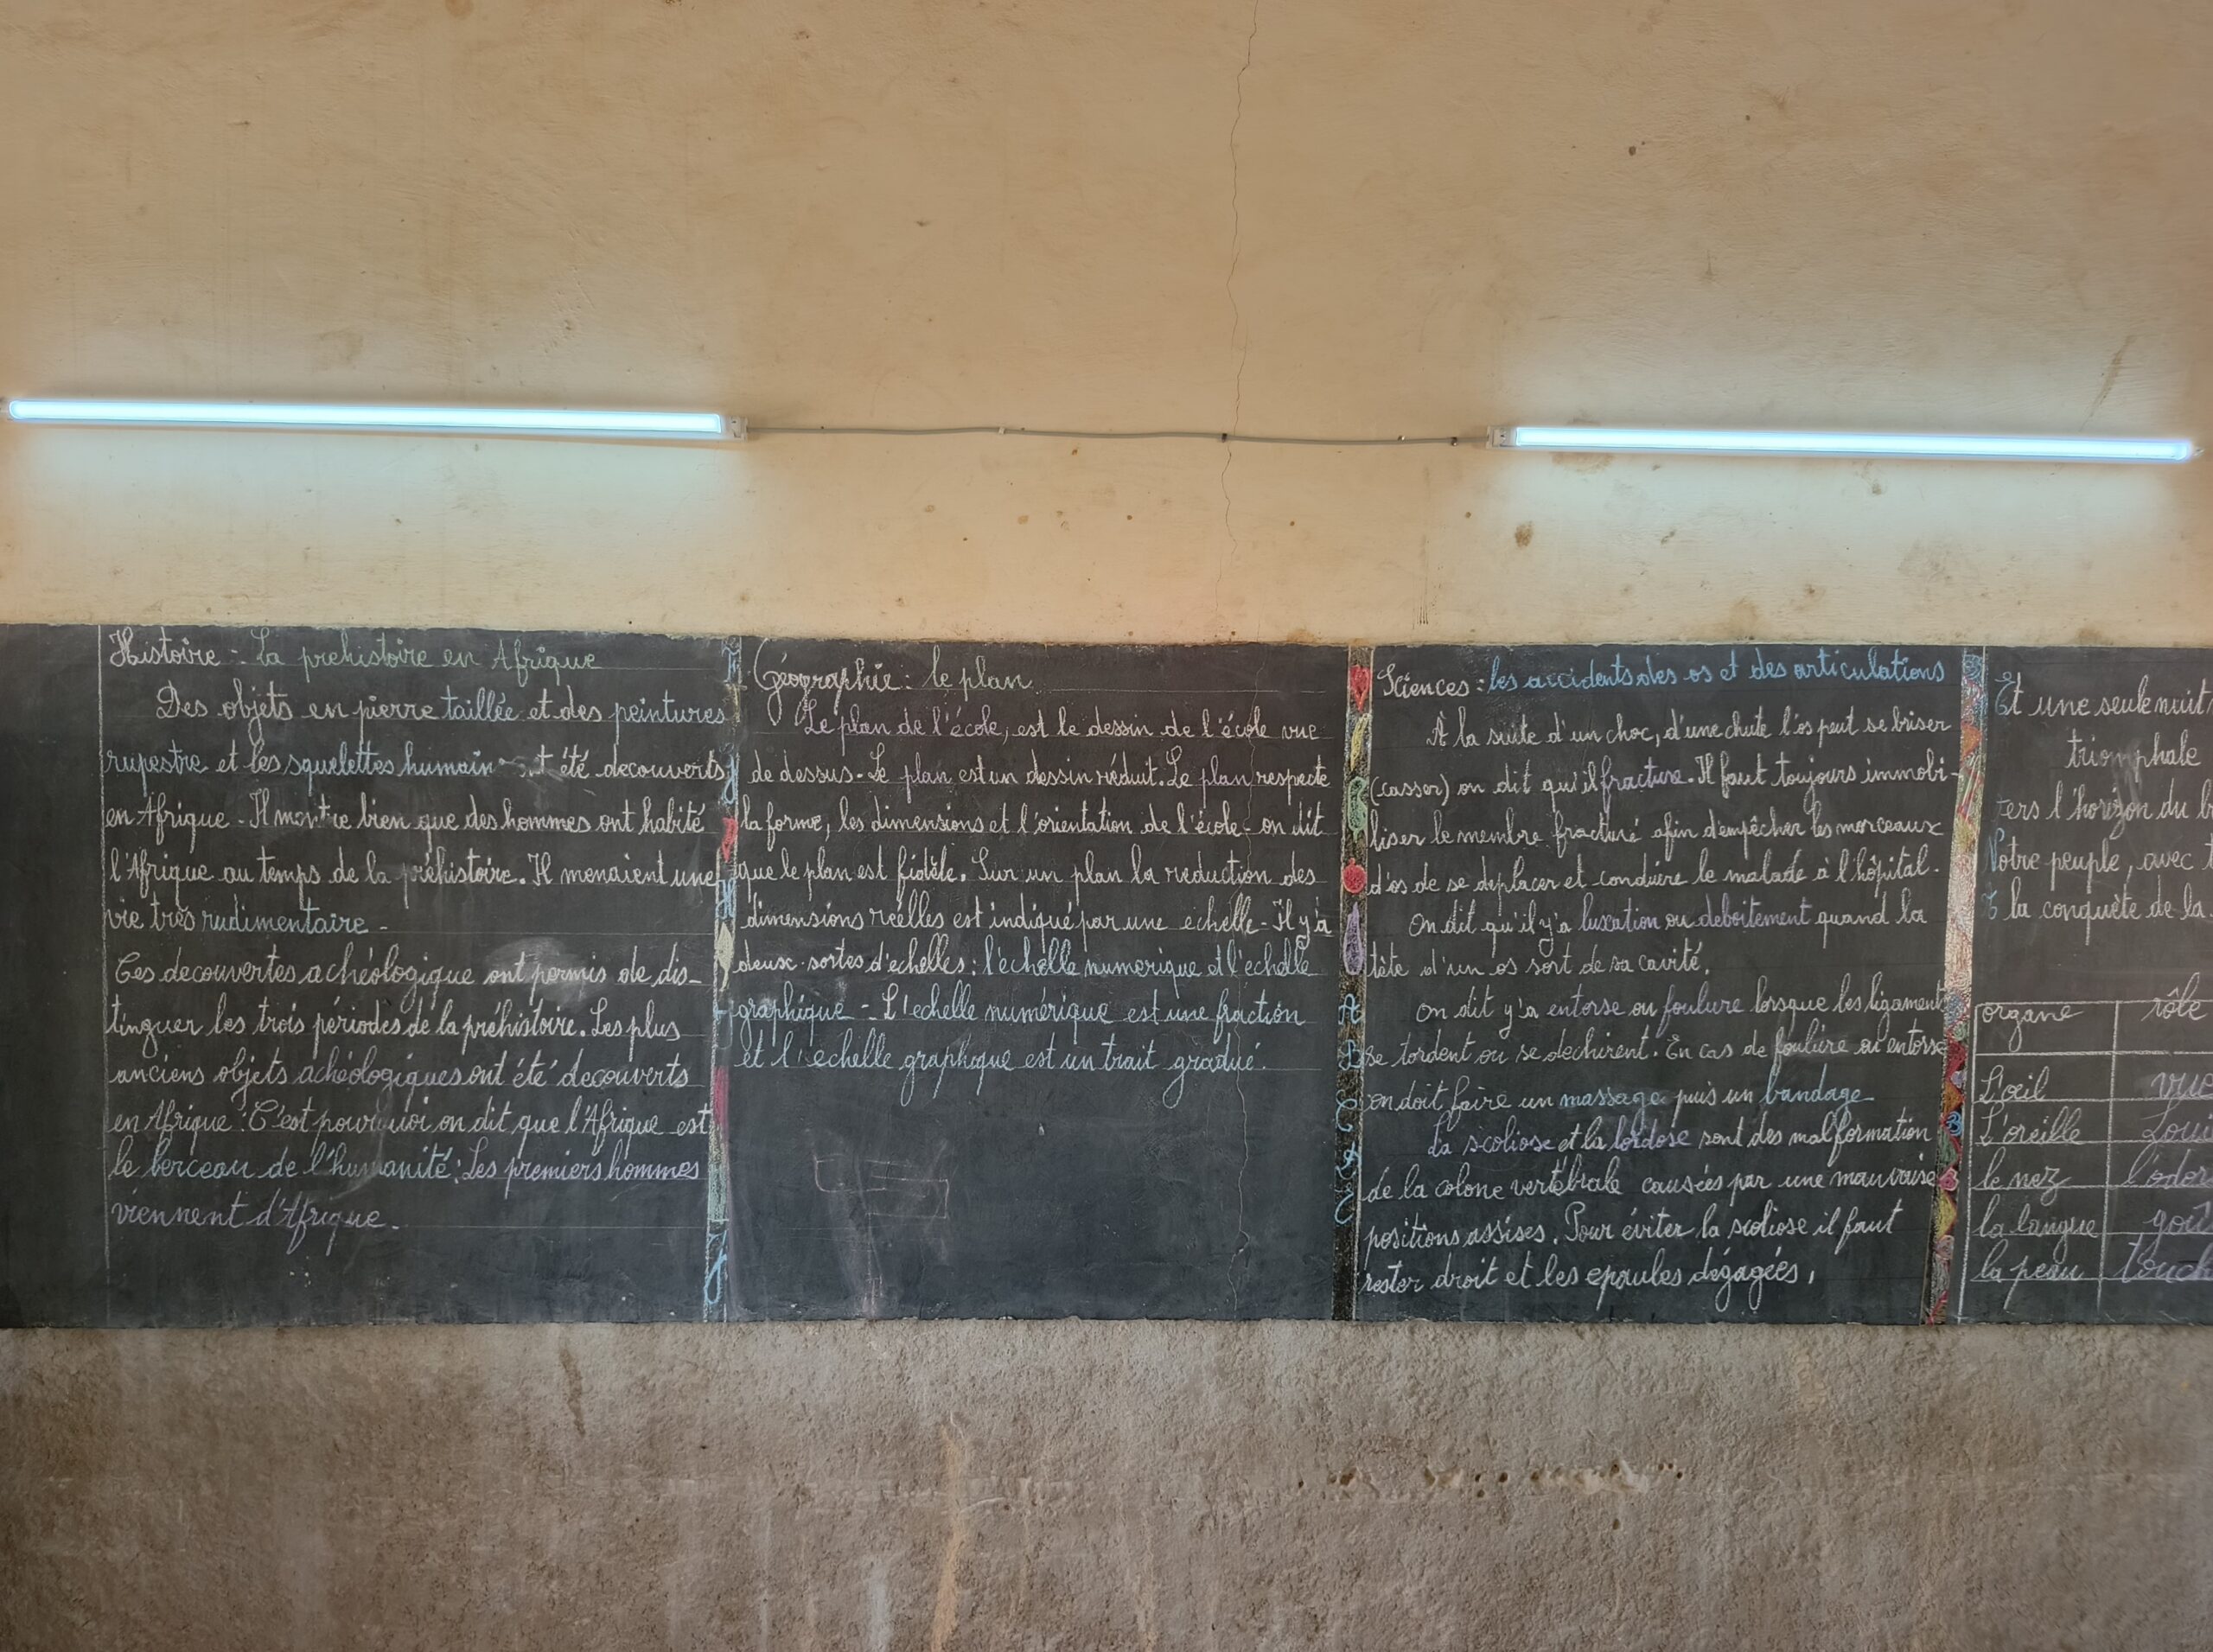 Histoire : La prehistoire en Afrique
Des objets en pierre taillée et des peintures
rupestre et les squelettes humain été decouverts
en Afrique - Il montre bien que des hommes ont habité
l'Afrique au temps de la préhistoire. Il menaient une
vie très rudimentaire -
Ces decouvertes achéologique ont permis de dis-
tinguer les trois périodes de la préhistoire. Les plus
anciens objets achéologiques ont été decouverts
en Afrique : C'est pourquoi on dit que l'Afrique est
le berceau de l'humanité : Les premiers hommes
viennent d'Afrique -
Géographie : le plan
Le plan de l'école, est le dessin de l'école vue
de dessus - Le plan est un dessin réduit. Le plan respecte
la forme, les dimensions et l'orientation de l'école - on dit
que le plan est fidèle. Sur un plan la reduction des
dimensions réelles est indiqué par une echelle - Il y a
deux sortes d'echelles : l'échelle numerique et l'echelle
graphique - L'echelle numérique est une fraction
et l'echelle graphique est un trait gradué.
Sciences : les accidents des os et des articulations
À la suite d'un choc, d'une chute l'os peut se briser
(casser) on dit qu'il fracture. Il faut toujours immobi-
liser le membre fracturé afin d'empêcher les morceaux
d'os de se deplacer et conduire le malade à l'hôpital.
On dit qu'il y'a luxation ou deboitement quand la
tête d'un os sort de sa cavité.
On dit y'a entorse ou foulure lorsque les ligament
se tordent ou se dechirent. En cas de foulure ou entorse
on doit faire un massage puis un bandage
La scoliose et la lordose sont des malformation
de la colone vertébrale causées par une mauvaise
positions assises. Pour éviter la scoliose il faut
rester droit et les epaules dégagées,
Et une seule nuit
triomphale
vers l'horizon du
Notre peuple, avec
la conquête de la
organe rôle
L'oeil vue
L'oreille
le nez
la langue
la peau
A
B
C